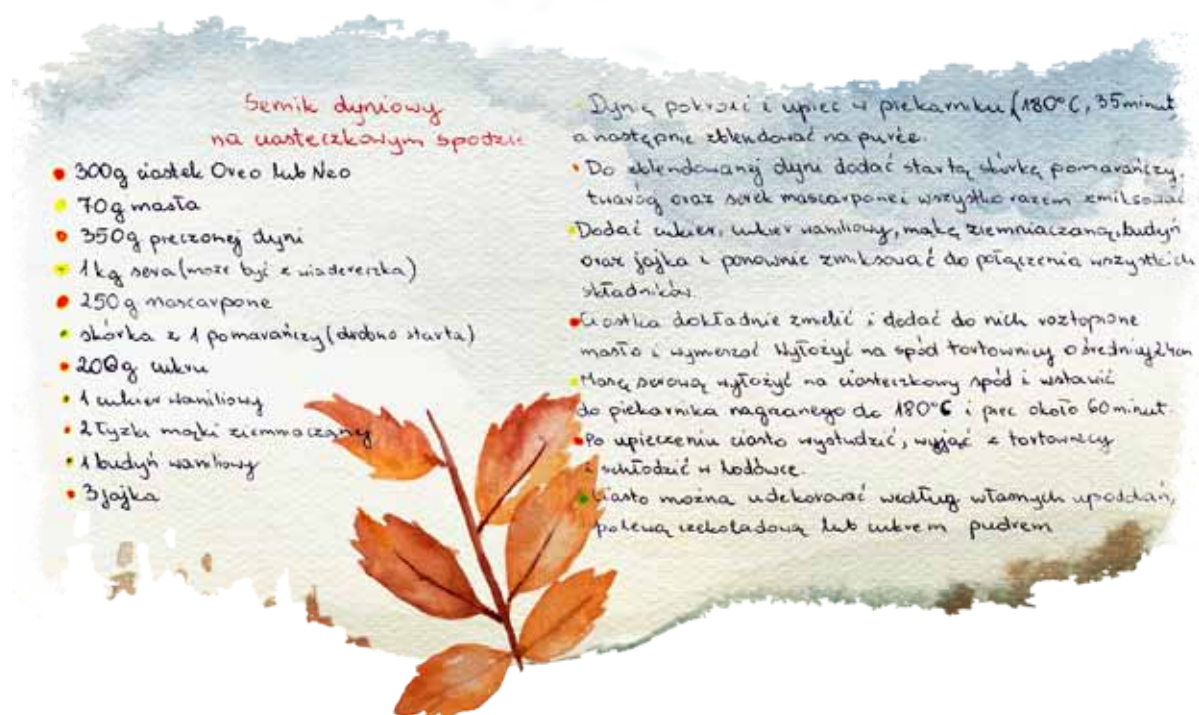 Sernik dyniowy
na ciasteczkowym spodzie
300g ciastek Oreo lub Neo
70g masła
350g pieczonej dyni
1 kg sera (może być z wiadereczka)
250g mascarpone
skórka z 1 pomarańczy (drobno starta)
200g cukru
1 cukier waniliowy
2 łyżki mąki ziemniaczanej
1 budyń waniliowy
3 jajka
Dynię pokroić i upiec w piekarniku (180°C, 35minut
a następnie zblendować na purée.
Do zblendowanej dyni dodać startą skórkę pomarańczy,
twaróg oraz serek mascarpone i wszystko razem zmiksować
Dodać cukier, cukier waniliowy, mąkę ziemniaczaną, budyń
oraz jajka i ponownie zmiksować do połączenia wszystkich
składników.
Ciastka dokładnie zmielić i dodać do nich roztopione
masło i wymieszać Wyłożyć na spód tortownicy o średnicy 24cm
Masę serową wyłożyć na ciasteczkowy spód i wstawić
do piekarnika nagrzanego do 180°C i piec około 60minut.
Po upieczeniu ciasto wystudzić, wyjąć z tortownicy
i schłodzić w lodówce.
Ciasto można udekorować według własnych upodobań,
polewą czekoladową lub cukrem pudrem